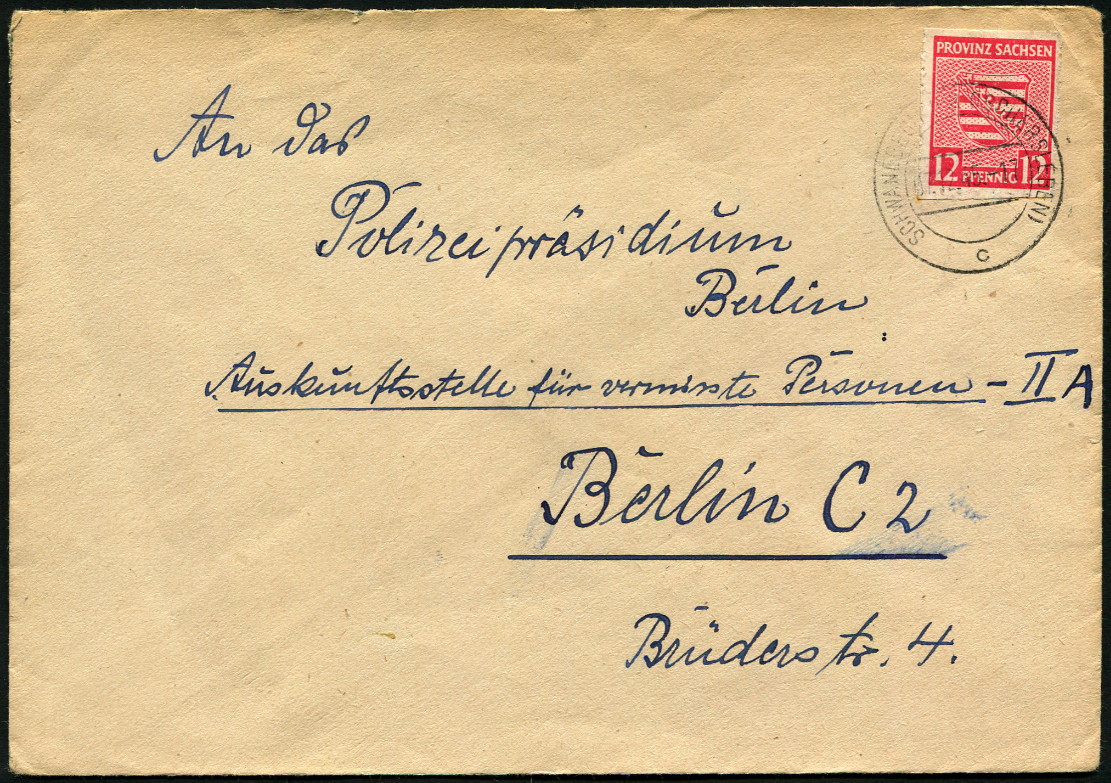 PROVINZ SACHSEN
12 PFENNIG 12
c
An das
Polizeipräsidium
Berlin
Auskunftsstelle für vermisste Personen - II A
Berlin C 2
Brüderstr. 4.